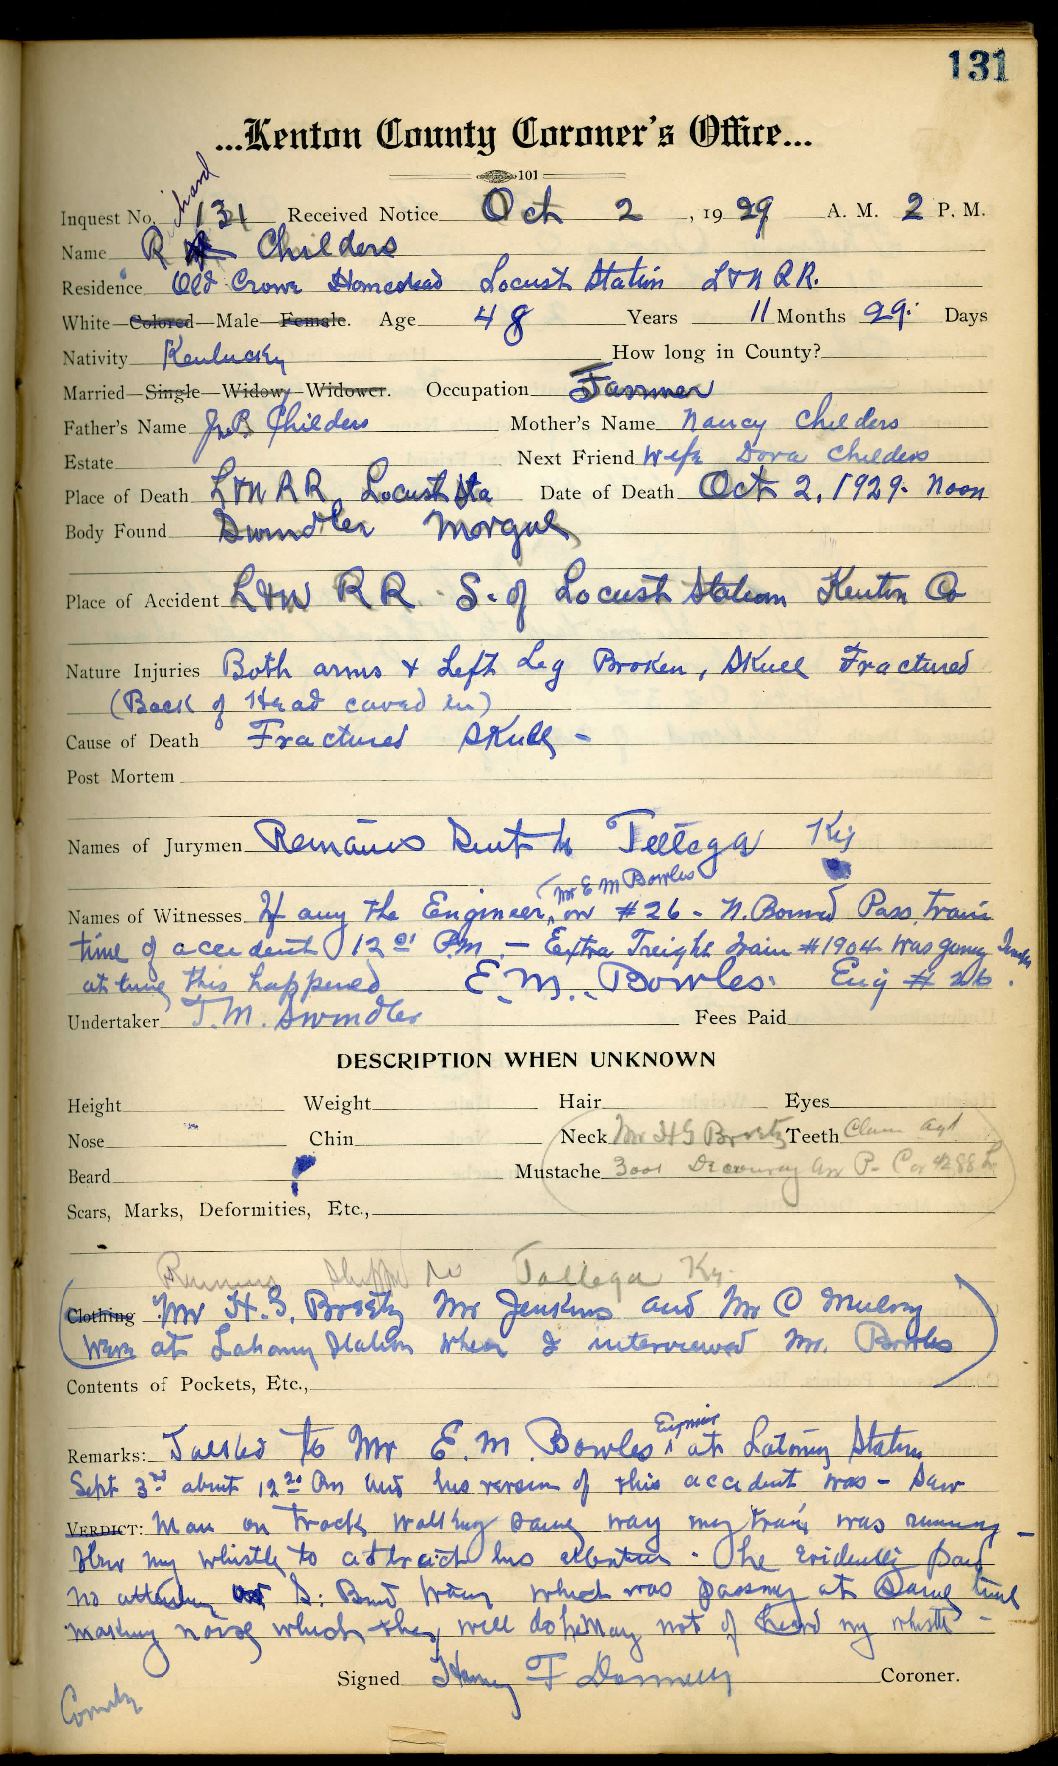 131
...Kenton County Coroner's Office...
101
Richard
Inquest No. 131 Received Notice Oct 2, 1929 A. M. 2 P. M.
Name R Childers
Residence Old Crowe Homestead Locust Station L&N RR.
White—Colored—Male—Female. Age 48 Years 11 Months 29. Days
Nativity Kentucky How long in County?
Married—Single—Widow—Widower. Occupation Farmer
Father's Name Jno B Childers Mother's Name Nancy Childers
Estate Next Friend Wife Dora Childers
Place of Death L&N RR Locust Sta Date of Death Oct 2, 1929. Noon
Body Found Swindler Morgue
Place of Accident L&N RR. S. of Locust Station Kenton Co
Nature Injuries Both arms & Left Leg Broken, Skull Fractured
(Back of Head caved in)
Cause of Death Fractured Skull -
Post Mortem
Names of Jurymen Remains Sent to Tallega Ky
(Mr E M Bowles
Names of Witnesses If any the Engineer, on #26 - N. Bound Pass, train
time of accident 12 01 P.M. - Extra Freight train #1904 was going South
at time this happened E. M. Bowles. Eng # 26.
Undertaker T. M. Swindler Fees Paid
DESCRIPTION WHEN UNKNOWN
Height Weight Hair Eyes
Nose Chin Neck Mr H G Teeth Claim agt
Beard Mustache 3001 Av
Scars, Marks, Deformities, Etc.,
Remains Shipped to Tallega Ky.
Clothing Mr H. G. Mr Jenkins and Mr C
were at Station when I interviewed Mr. Bowles
Contents of Pockets, Etc.,
Engineer
Remarks: Talked to Mr E. M. Bowles at Latonia Station
Sept 3rd about 12 20 Pm and his version of this accident was - Saw
VERDICT: Man on track walking same way my train was running -
Blew my whistle to attract his attention. He evidently paid
no attention as S. Bnd train which was passing at same time
making noise which they will do he may not of heard my whistle -
Signed Harry F Donnelly Coroner.